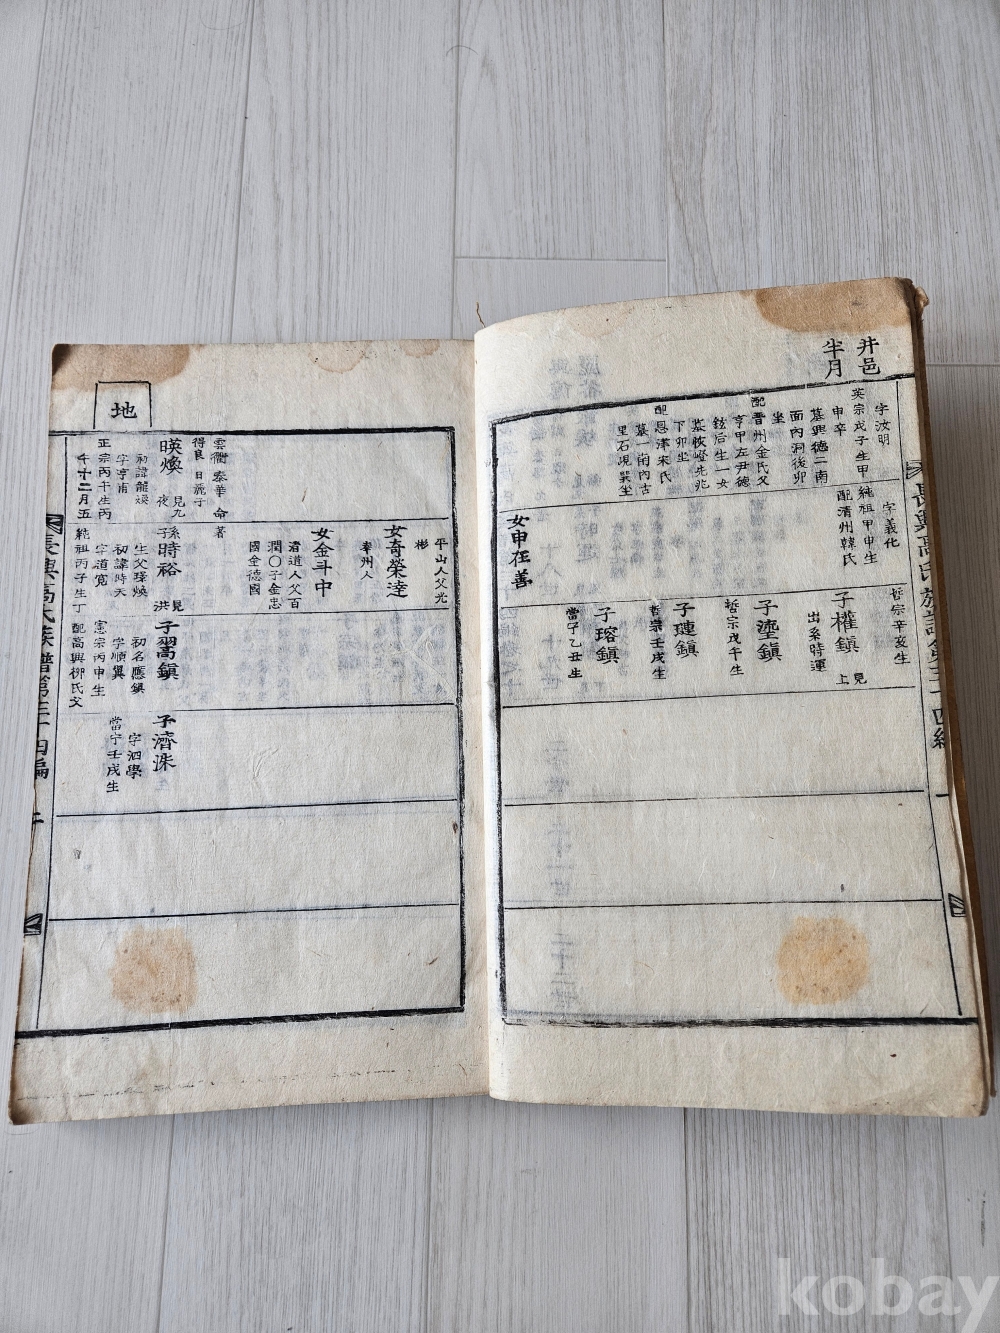 井邑
半月
長興高氏族譜第三十四編 一
字汝明
英宗戊子生甲
申卒
墓興德二南
面內洞後卯
坐
配晋州金氏父
亨甲左尹德
鉉后生一女
墓校嶝先兆
下卯坐
配恩津宋氏
墓一南內古
里石現巽坐
字義化
純祖甲申生
配淸州韓氏
女申在善
哲宗辛亥生
子權鎭 見上
出系時運
子瀅鎭
哲宗戊午生
子璉鎭
哲宗壬戌生
子瑢鎭
當宁乙丑生
地
雲衢 泰華 命著
得良 日旎子
暎煥 見九夜
初諱龍煥
字亨甫
正宗丙午生丙
午十二月五
平山人父光
彬
女奇榮逵
幸州人
女金斗中
淸道人父百
潤〇子金忠
國金德國
孫時裕
子 見洪
生父琫煥
初諱時天
字道寬
純祖丙子生丁
子翯鎭
初名應鎭
字順翼
憲宗丙申生
配高興柳氏父
子濟洙
字泗學
當宁壬戌生
長興高氏族譜第三十四編 二
kobay